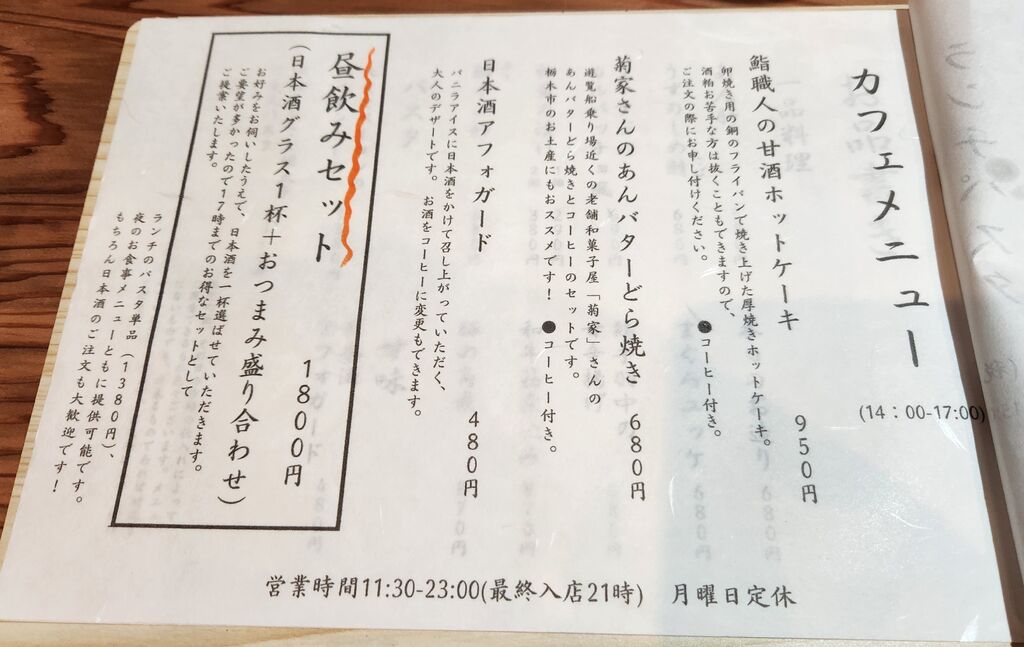 カフェメニュー
(14：00-17:00)
鮨職人の甘酒ホットケーキ
950円
卵焼き用の銅のフライパンで焼き上げた厚焼きホットケーキ。
酒粕お苦手な方は抜くこともできますので、
ご注文の際にお申し付けください。
●コーヒー付き。
菊家さんのあんバターどら焼き
680円
遊覧船乗り場近くの老舗和菓子屋「菊家」さんの
あんバターどら焼きとコーヒーのセットです。
栃木市のお土産にもおススメです！
●コーヒー付き。
日本酒アフォガード
480円
バニラアイスに日本酒をかけて召し上がっていただく、
大人のデザートです。
お酒をコーヒーに変更もできます。
昼飲みセット
1800円
（日本酒グラス1杯＋おつまみ盛り合わせ）
お好みをお伺いしたうえで、日本酒を一杯選ばせていただきます。
ご要望が多かったので17時までのお得なセットとして
ご提案いたします。
ランチのパスタ単品（1380円）、
夜のお食事メニューともに提供可能です。
もちろん日本酒のご注文も大歓迎です！
営業時間11:30-23:00(最終入店21時)　月曜日定休